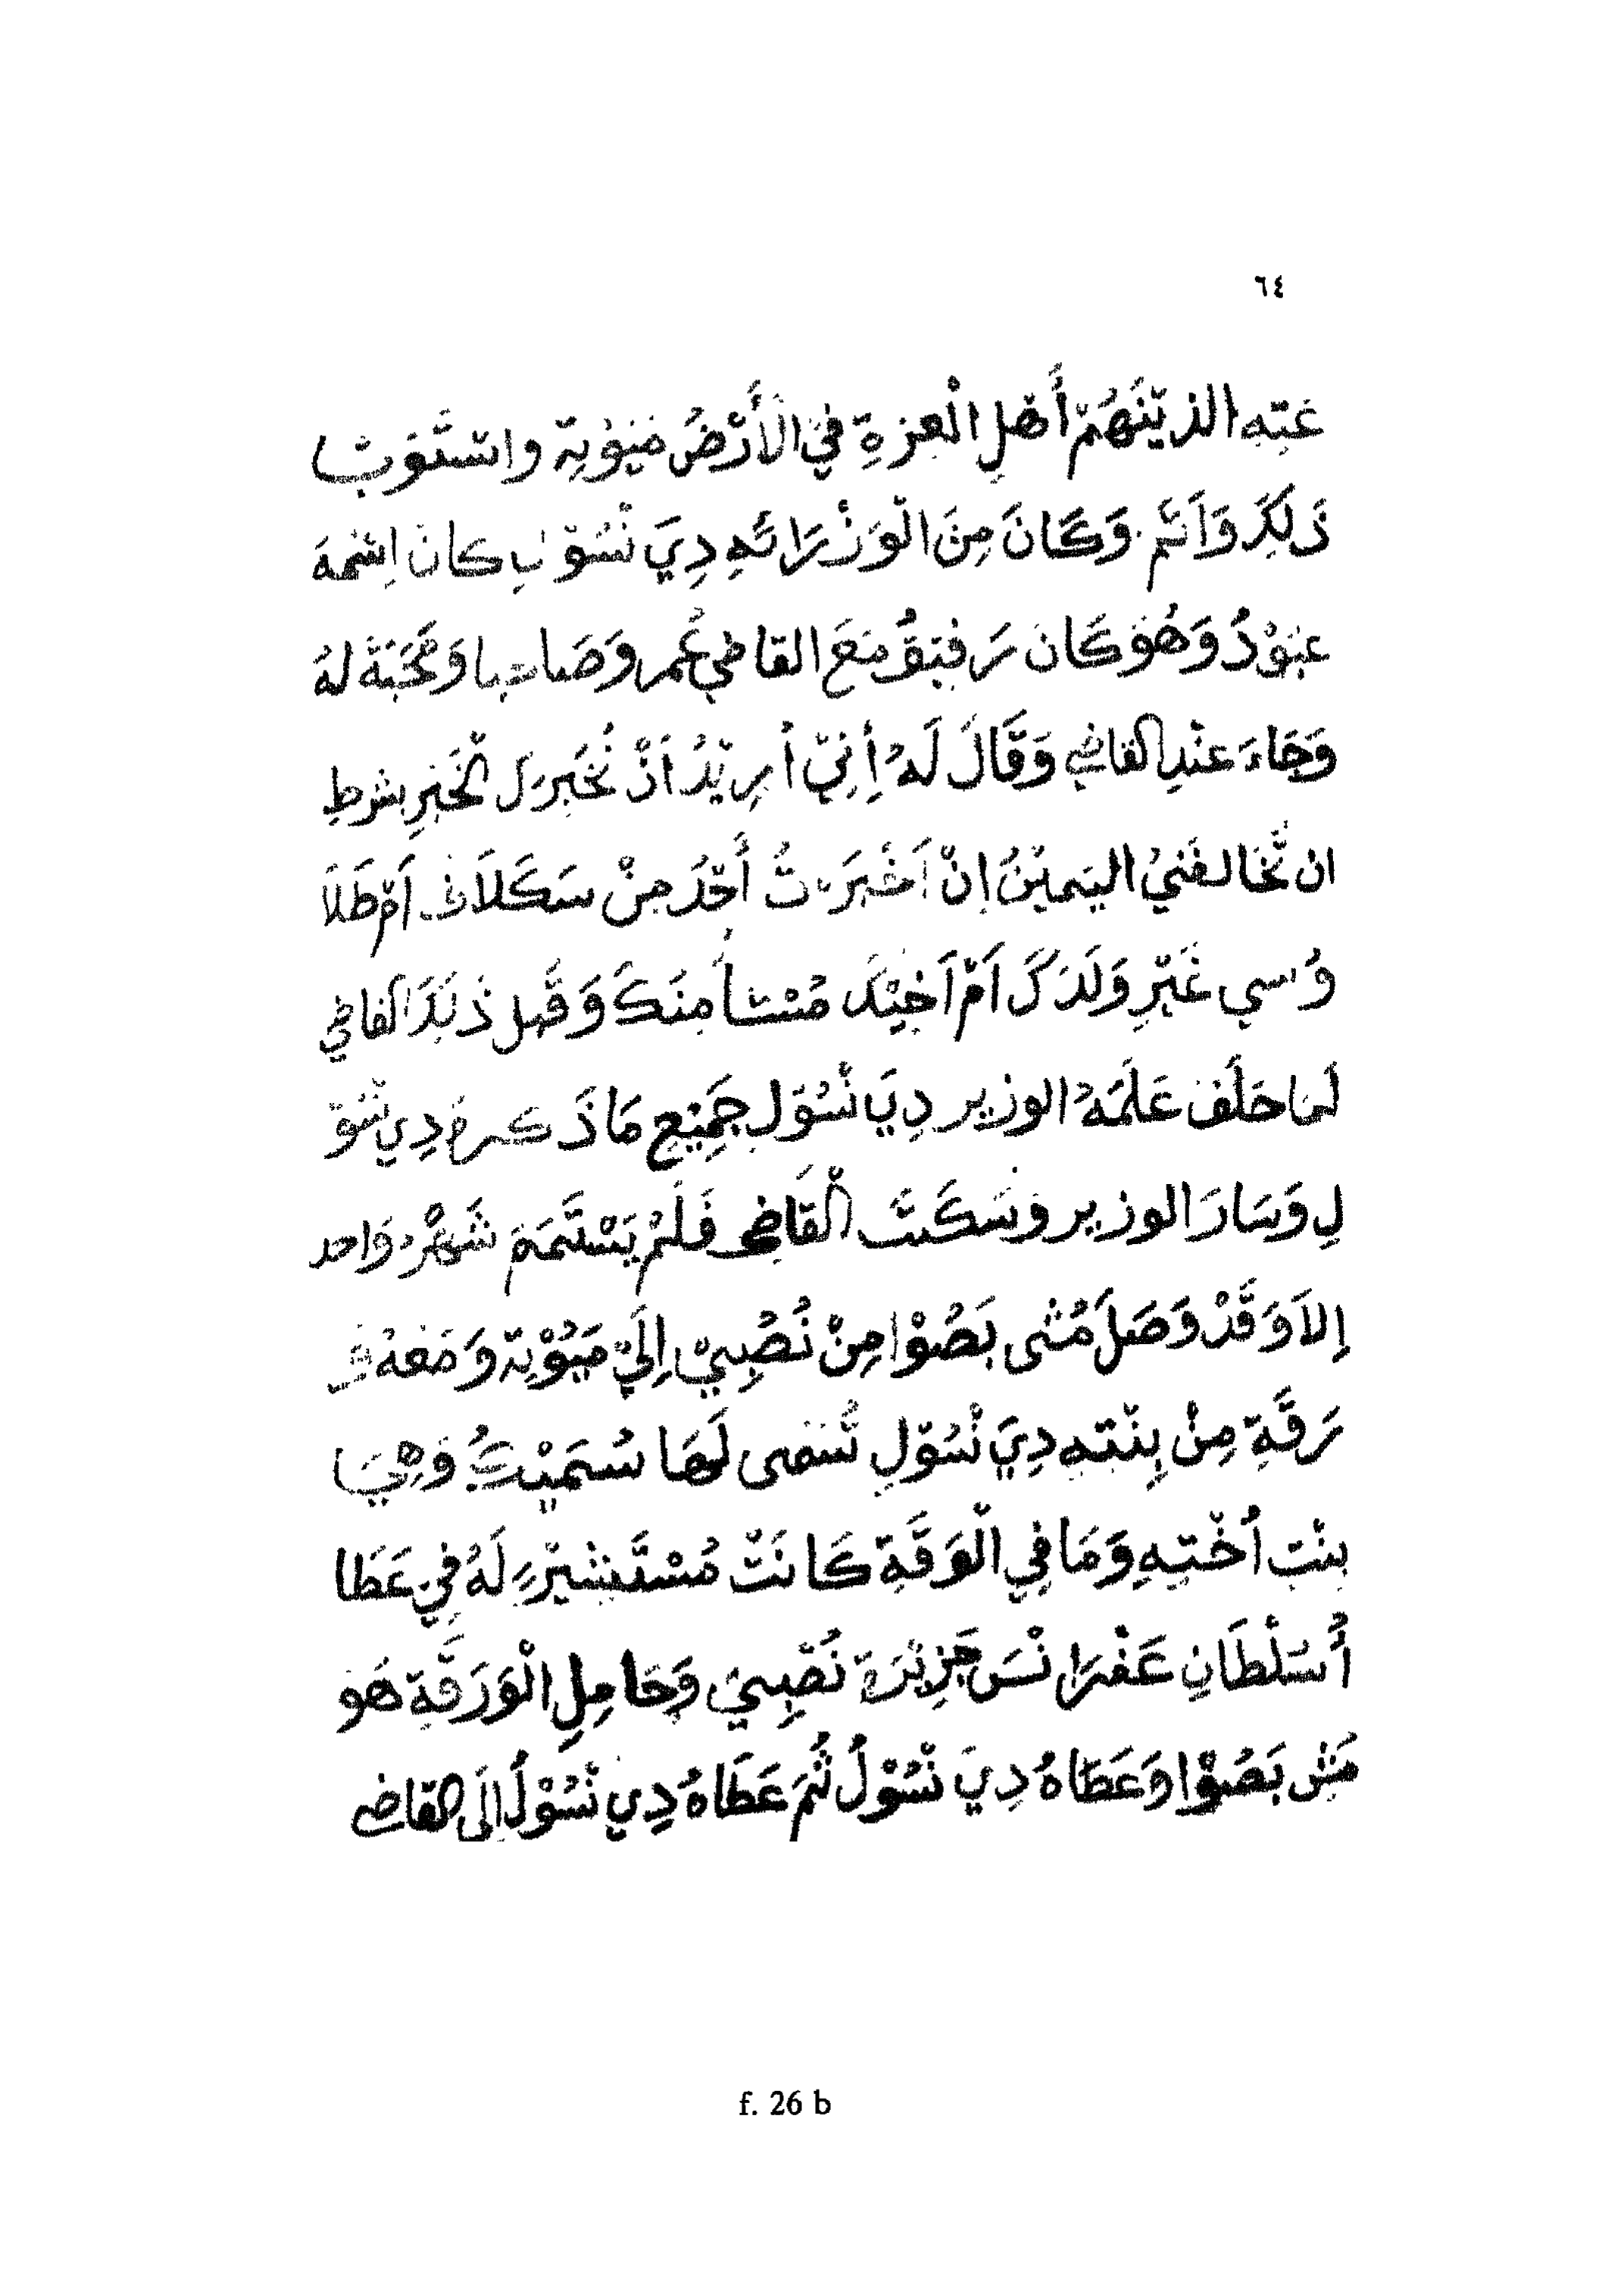 ٦٤
عَتِهِ الذِيْنَهُمْ أَهْلِ الْعِزةِ فِي الْأَرْضُ مَيُوْتِهْ واسْتَوَبْ
ذَلِكَ وَاَتَم وَكَانَ مِنَ الْوَزْرَائهِ دِيَ نْسُوْلِ كان اِسْمهَ
عبُوْدُ وَهُوَ كَانَ رَفيقُ مَعَ القاضِي عُمر وَصَاحِبا وَمَحَبَة لهُ
وَجَاءَ عنْدِ القاضِي وَقَالَ لَهُ إِنِيّ أُرِيْدُ اَنْ نُخَبِرَكَ الْخَبَرِ بشرطِ
ان تُخَالفَنيْ اليَمِيْنُ إِنْ اَخْبَرَتُ أَحَدُ مِنْ سَكَلَاف اَمْ طَلَا
وُسي غَيْرِ وَلَدَكَ اَمْ اَخِيْكَ مُسْتَأ مِنَكَ وَقَبِل ذَلِكَ القاضِي
لَمَا حَلَف عَلَمَهُ الوزير دِيَ نْسُوْلِ جَمِيْعِ مَا ذَكره دِي نْسُوْ
لِ وَسَارَ الوزير وسَكَتَ الْقَاضِي فَلَمْ يَسْتَمَمَ شَهْرُ وَاحد
إِلاَ وَقَدْ وَصَلَ مُشى بَصُوْا مِنْ نُصْبِيْ اِلَيْ مَيُوْتِهْ وَمَعَهُ وَ
رَقَةِ مِنْ بِنْتهِ دِيَ نْسُوْلِ تُسَمى لَهَا سُمَيْتُ وَهِيَ
بِنْتِ أُخْتِهِ وَمَا فِي الْوَقَةِ كَانَتْ مُسْتَشِيْرَ لَهُ فِي عَطَا
أُسُلْطَانِ عَفْرَا نْسَ جَزِيْرَة نُصْبِيْ وَحَامِلِ الْوَرَقَةِ هَو
مَش بَصُوْا وَعَطَاهُ دِيَ نْسُوْلُ ثُمَ عَطَاهُ دِي نْسُوْلُ اِلَى القاضي
f. 26 b